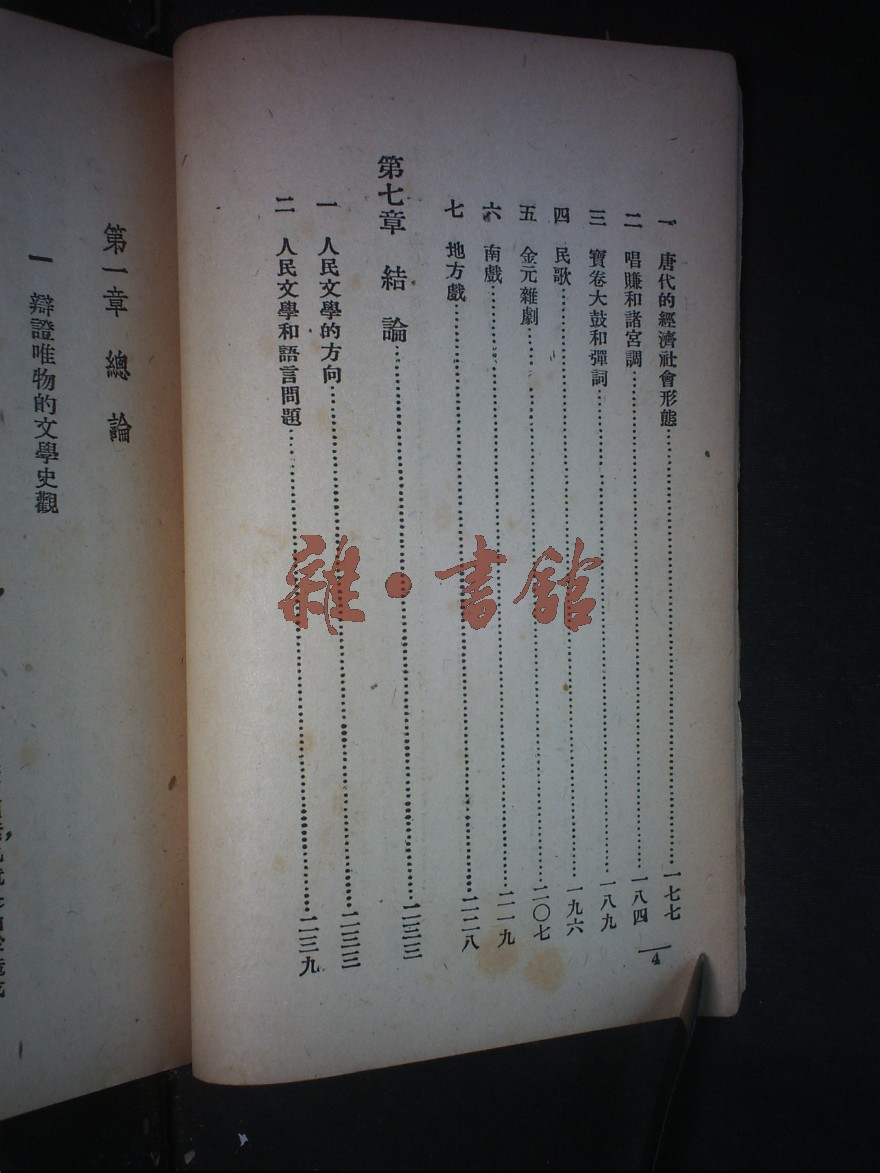 一　唐代的經濟社會形態……一七七
二　唱賺和諸宮調……一八四
三　寶卷大鼓和彈詞……一八九
四　民歌……一九六
五　金元雜劇……二〇七
六　南戲……二一九
七　地方戲……二二八
第七章　結論……二三三
一　人民文學的方向……二三三
二　人民文學和語言問題……二三九
4
第一章　總論
一　辯證唯物的文學史觀
雜·書館